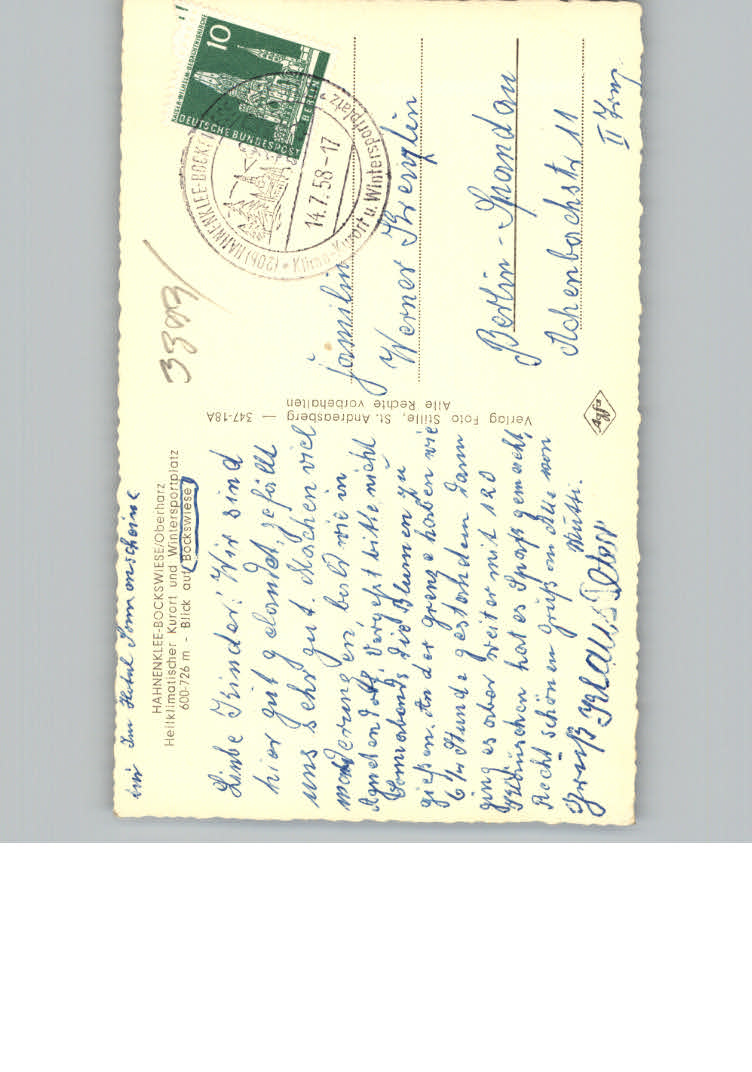 im Hotel Sonnenscheine
HAHNENKLEE-BOCKSWIESE/Oberharz
Heilklimatischer Kurort und Wintersportplatz
600-726 m - Blick auf Bockswiese
Liebe Kinder! Wir sind
hier gut gelandet, gefällt
uns sehr gut. Machen viel
wanderungen, bald wie in
Vergeßt bitte nicht
Sonnabends die Blumen zu
gießen. An der Grenze haben wir
6 1/4 Stunde gestanden dann
ging es aber weiter mit 120
Kläuschen hat es Spaß gemacht,
Recht schönen Gruß an Alle von
Mutti.
Gruß Klaus, Peter
Verlag Foto Stille, St. Andreasberg — 347-18A
Alle Rechte vorbehalten
Agfa
3393
KAISER-WILHELM-GEDÄCHTNISKIRCHE
10
DEUTSCHE BUNDESPOST
BERLIN
(20b) HAHNENKLEE-BOCKSWIESE
14.7.58-17
Klima-Kurort u. Wintersportplatz
Familie
Werner Krenzlin
Berlin-Spandau
Achenbachstr 11
II Trep.